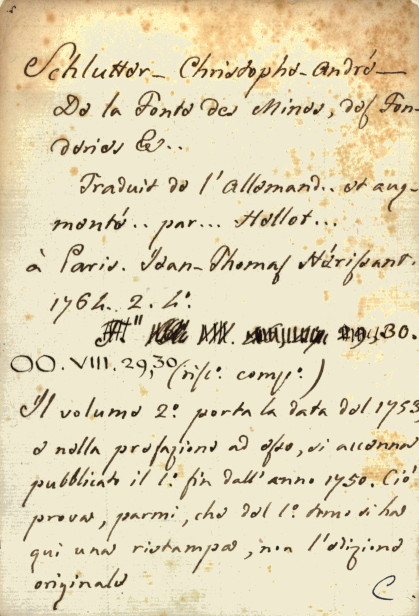 Schlutter_ Christophe-André_
De la Fonte des Mines, des Fon-
deries &..
Traduit de l'Allemand.. et aug-
menté.. par... Hellot...
à Paris. Jean-Thomas Hérissant.
1764. 2. 4°.
30.
OO.VIII.29,30 (risc°. comp°.)
Il volume 2°. porta la data del 1753,
e nella prefazione ad esso, si accenna
pubblicato il 1°. fin dall'anno 1750. Ciò
prova, parmi, che del 1°. tomo si ha
qui una ristampa, non l'edizione
originale
C